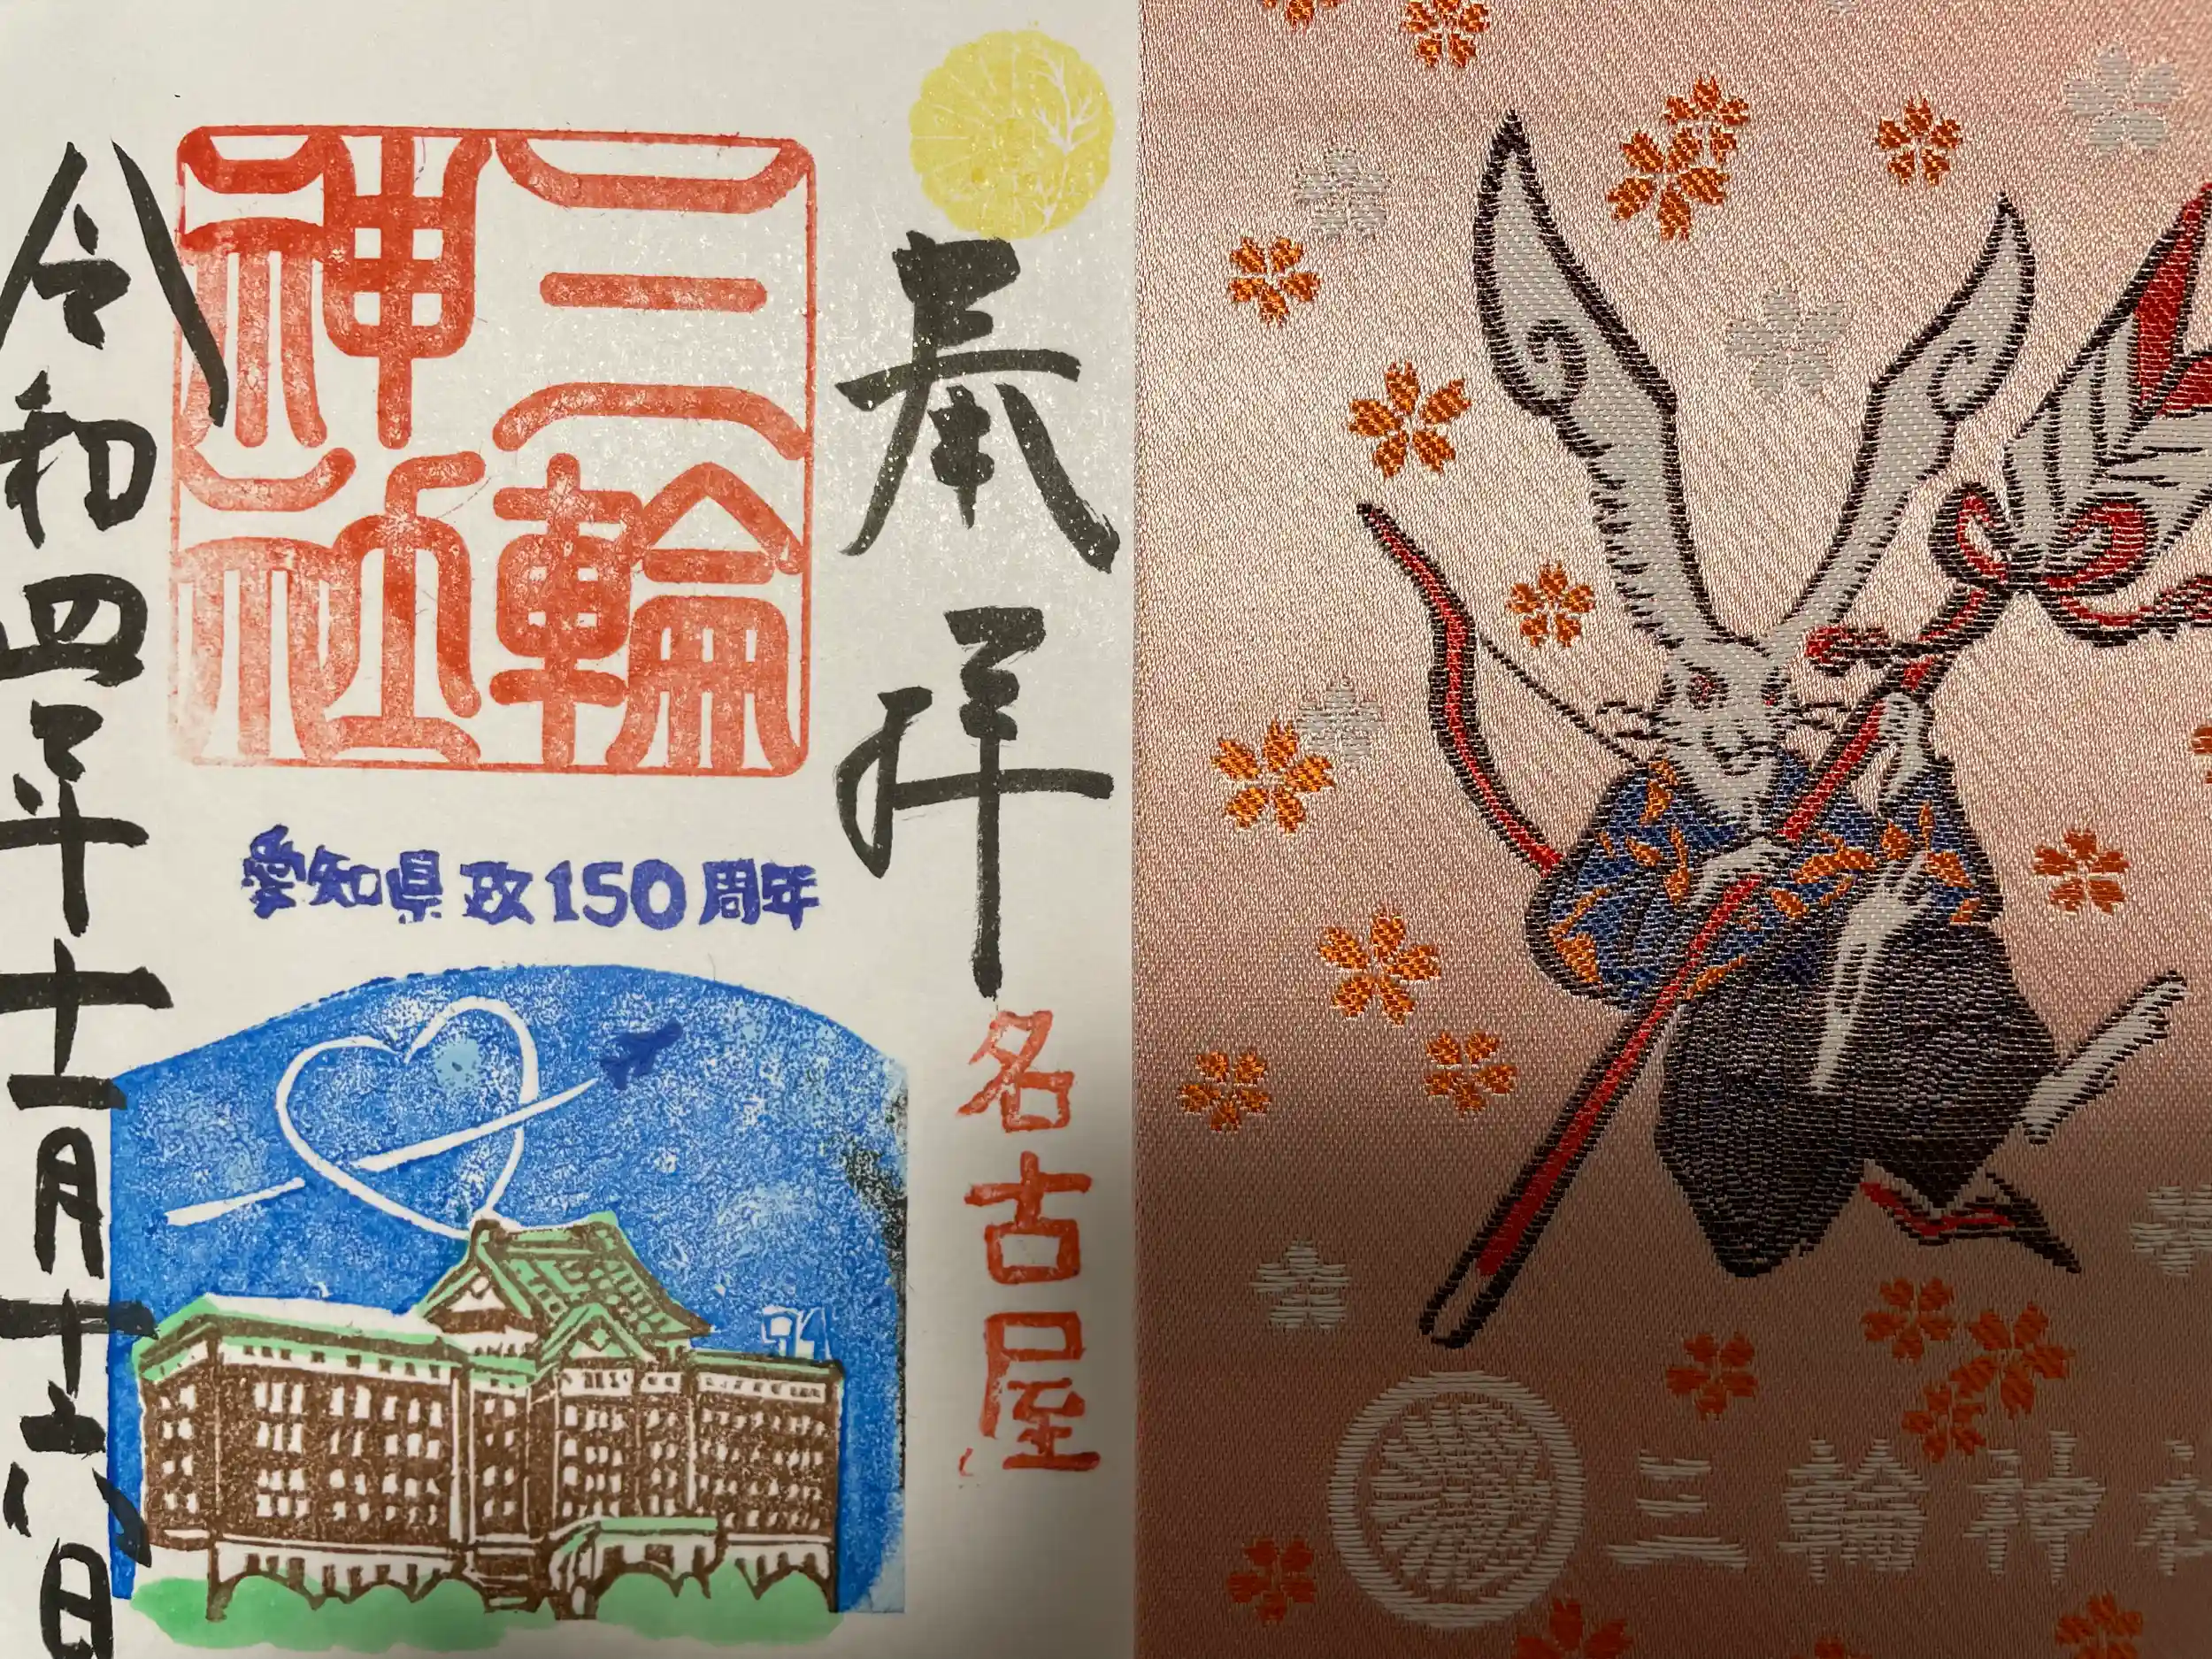 奉拝
名古屋
三輪
神社
愛知県政150周年
令和四年十一月十六日
三輪神